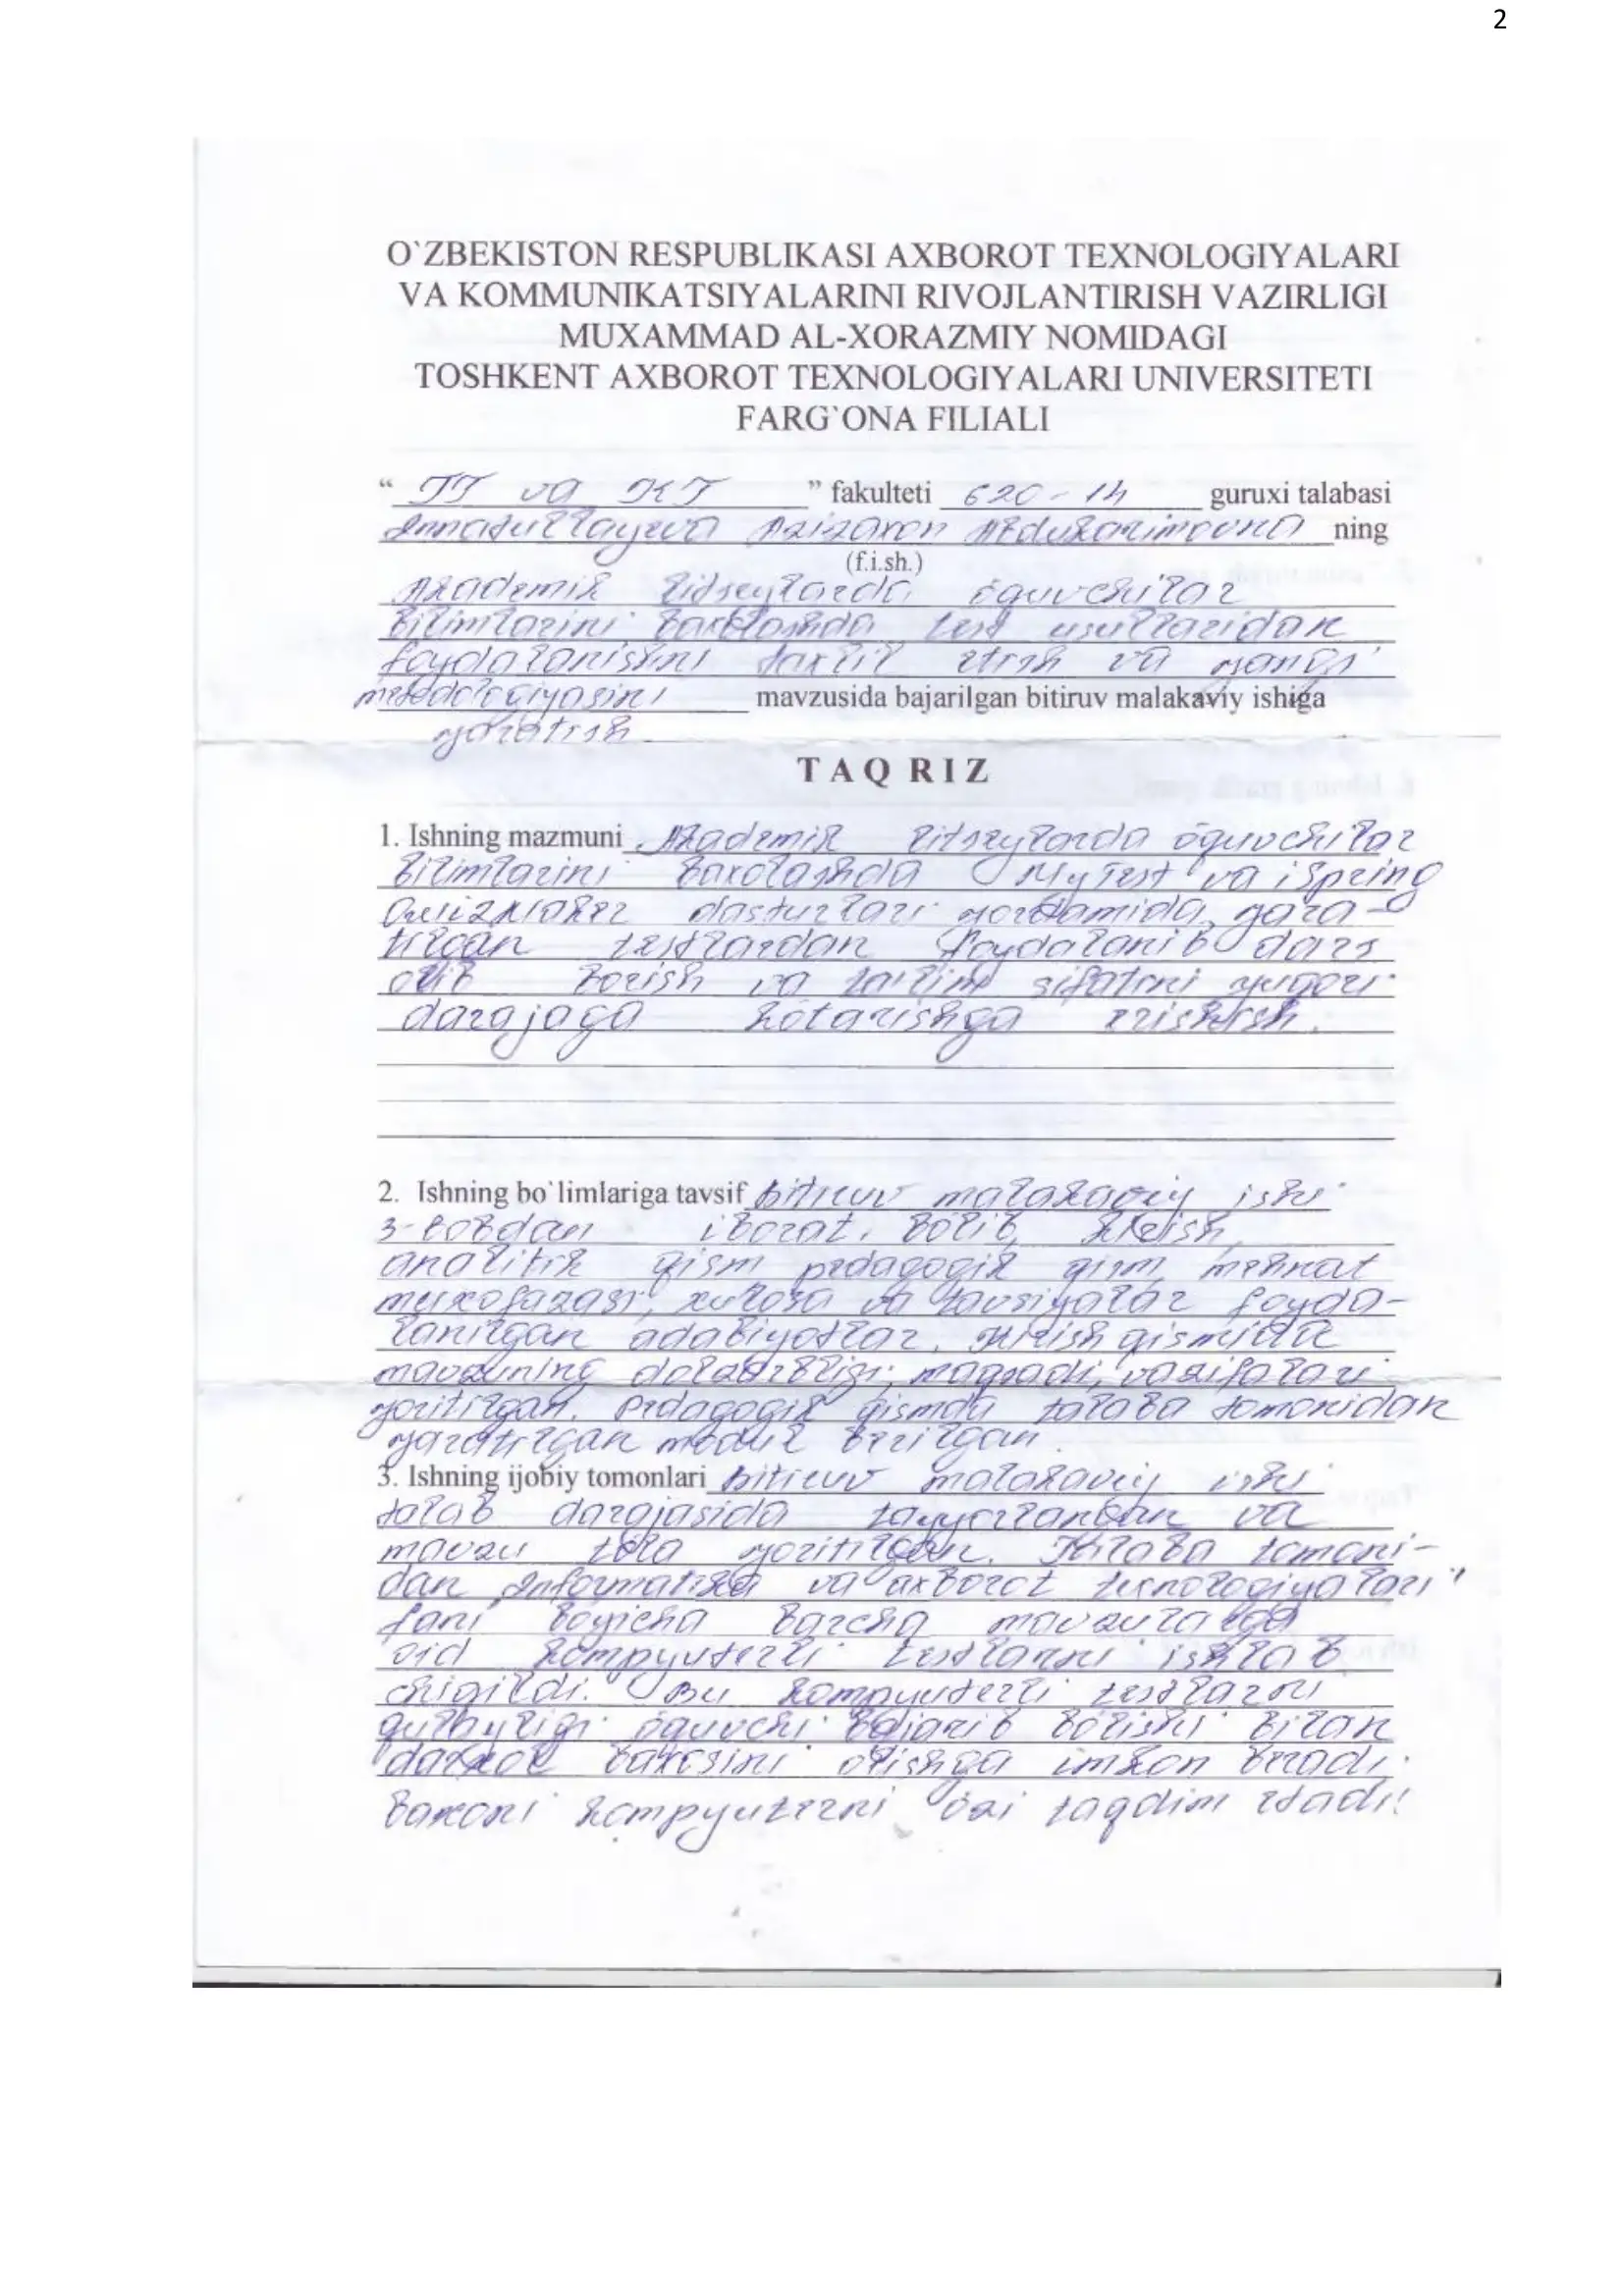 2
O`ZBEKISTON RESPUBLIKASI AXBOROT TEXNOLOGIYALARI
VA KOMMUNIKATSIYALARINI RIVOJLANTIRISH VAZIRLIGI
MUXAMMAD AL-XORAZMIY NOMIDAGI
TOSHKENT AXBOROT TEXNOLOGIYALARI UNIVERSITETI
FARG`ONA FILIALI
“ IT va KT ” fakulteti 620-14 guruxi talabasi
Innatullayeva Azizaxon Abdukarimovna ning
(f.i.sh.)
Akademik litseylarda o'quvchilar
bilimlarini baxolashda test usullaridan
foydalanishni taxlil etish va yangi
metodologiyasini mavzusida bajarilgan bitiruv malakaviy ishiga
yaratish
TAQRIZ
1. Ishning mazmuni Akademik litseylarda o'quvchilar
bilimlarini baxolashda MyTest va iSpring
QuizMaker dasturlari yordamida yara-
tilgan testlardan foydalanib dars
olib borish va ta'lim sifatini yuqori
darajaga ko'tarishga erishish.
2. Ishning bo`limlariga tavsif Bitiruv malakaviy ishi
3-bobdan iborat. bo'lib, kirish,
analitik qism pedagogik qism, mehnat
muxofazasi, xulosa va tavsiyalar foyda-
lanilgan adabiyotlar. Kirish qismida
mavzuning dolzarbligi, maqsadi, vazifalari
yoritilgan. Pedagogik qismda talaba tomonidan
yaratilgan modul berilgan.
3. Ishning ijobiy tomonlari Bitiruv malakaviy ishi
talab darajasida tayyorlangan va
mavzu to'la yoritilgan. Talaba tomoni-
dan "Informatika va axborot texnologiyalari"
fani bo'yicha barcha mavzularga
oid kompyuterli testlarni ishlab
chiqildi. Bu kompyuterli testlarni
qulayligi o'quvchi bajarib bo'lishi bilan
darxol baxosini olishga imkon beradi.
Baxoni kompyuterni o'zi taqdim etadi!